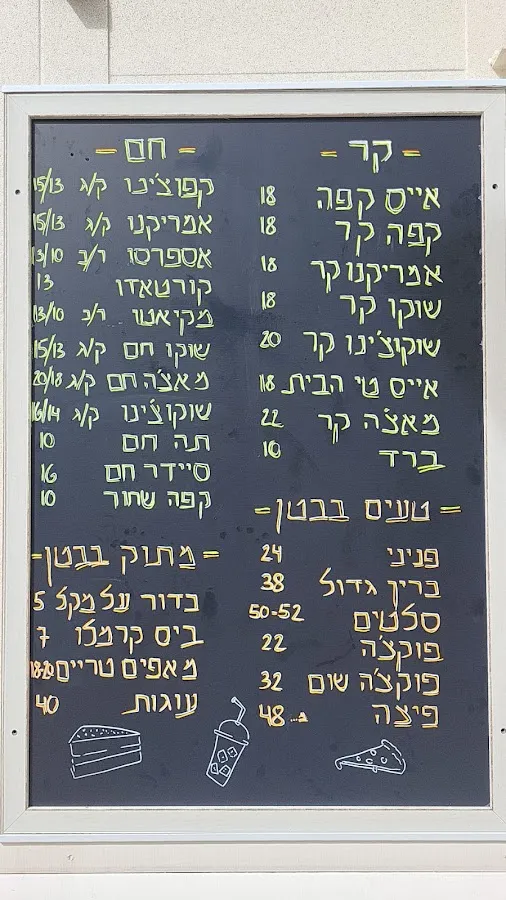 קר
אייס קפה 18
קפה קר 18
אמריקנו קר 18
שוקו קר 18
שוקוצ'ינו קר 20
אייס טי הבית 18
מאצ'ה קר 22
ברד 10
טעים בבטן
פניני 24
בריך גדול 38
סלטים 50-52
פוקצ'ה 22
פוקצ'ה שום 32
פיצה ב... 48
חם
קפוצ'ינו ק/ג 15/13
אמריקנו ק/ג 15/13
אספרסו ר/כ 13/10
קורטאדו 13
מקיאטו ר/כ 13/10
שוקו חם ק/ג 15/13
מאצ'ה חם ק/ג 20/18
שוקוצ'ינו ק/ג 16/14
תה חם 10
סיידר חם 16
קפה שחור 10
מתוק בבטן
כדור על מקל 5
ביס קרמלו 7
מאפים טריים 18-20
עוגות 40